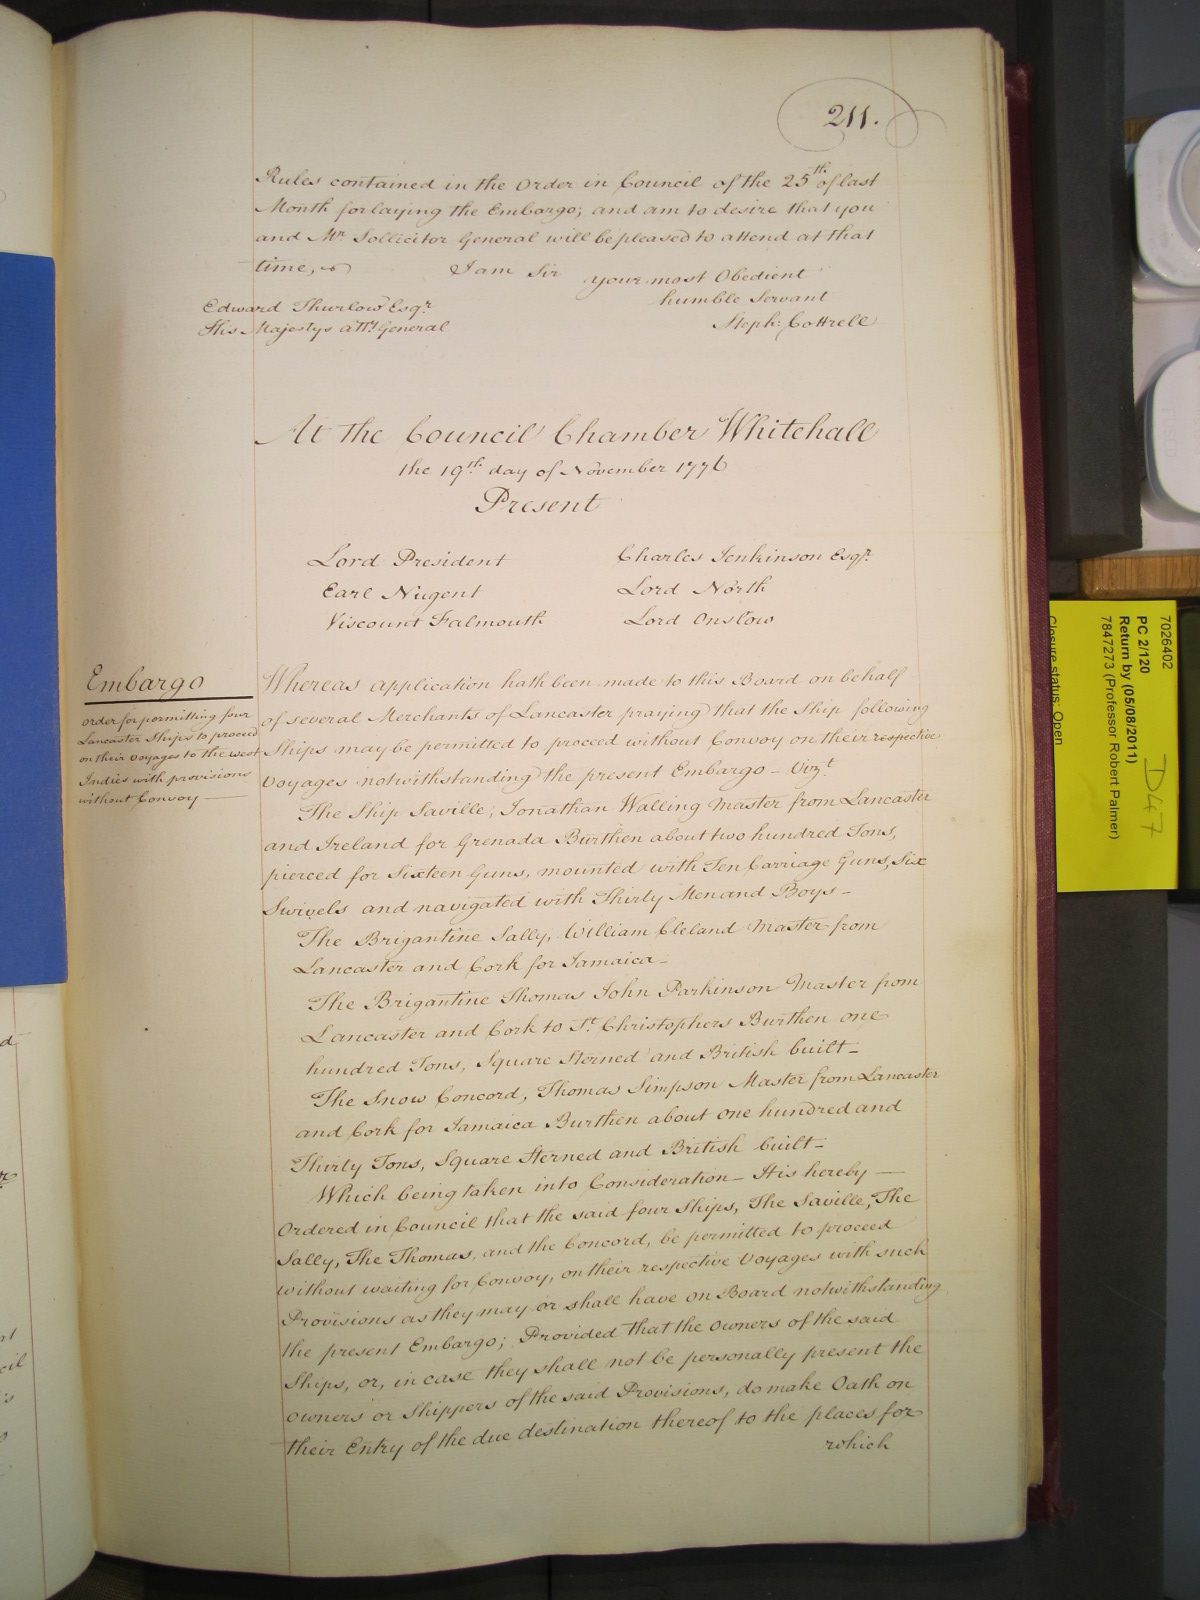 211.
Rules contained in the Order in Council of the 25th of last
Month for laying the Embargo; and am to desire that you
and Mr. Sollicitor General will be pleased to attend at that
time,
I am Sir your most Obedient
humble Servant
Steph: Cottrell
Edward Thurlow Esqr.
His Majestys Atty. General
At the Council Chamber Whitehall
the 19th day of November 1776
Present
Lord President
Charles Jenkinson Esqr.
Earl Nugent
Lord North
Viscount Falmouth
Lord Onslow
Embargo
order for permitting four
Lancaster Ships to proceed
on their Voyages to the West
Indies with provisions
without Convoy —
Whereas application hath been made to this Board on behalf
of several Merchants of Lancaster praying that the Ship following
Ships may be permitted to proceed without Convoy on their respective
Voyages notwithstanding the present Embargo - Vizt.
The Ship Saville, Jonathan Walling Master from Lancaster
and Ireland for Grenada Burthen about two hundred Tons,
pierced for Sixteen Guns, mounted with Ten Carriage Guns, Six
Swivels and navigated with Thirty Men and Boys -
The Brigantine Sally, William Cleland Master from
Lancaster and Cork for Jamaica -
The Brigantine Thomas John Parkinson Master from
Lancaster and Cork to St. Christophers Burthen one
hundred Tons, Square Sterned and British built -
The Snow Concord, Thomas Simpson Master from Lancaster
and Cork for Jamaica Burthen about one hundred and
Thirty Tons, Square Sterned and British built -
Which being taken into Consideration - It is hereby —
Ordered in Council that the said four Ships, The Saville, The
Sally, The Thomas, and the Concord, be permitted to proceed
without waiting for Convoy, on their respective Voyages with such
Provisions as they may or shall have on Board notwithstanding
the present Embargo; Provided that the Owners of the said
Ships, or, in case they shall not be personally present the
Owners or Shippers of the said Provisions, do make Oath on
their Entry of the due destination thereof to the places for
which
7026402
PC 2/120
Return by (05/08/2011)
7847273 (Professor Robert Palmer)
Closure status: Open
D47